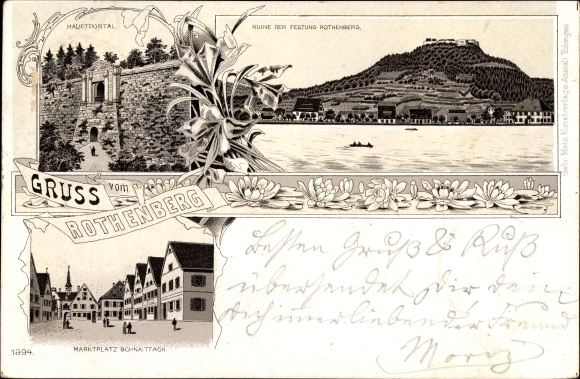 HAUPTPORTAL
RUINE DER FESTUNG ROTHENBERG.
GRUSS vom
ROTHENBERG
Besten Gruß & Kuß
übersendet Dir dein
Dich immer liebender Freund
Moriz
MARKTPLATZ SCHNAITTACH.
1894.
Gebr. Metz Kunstverlags-Anstalt Tübingen